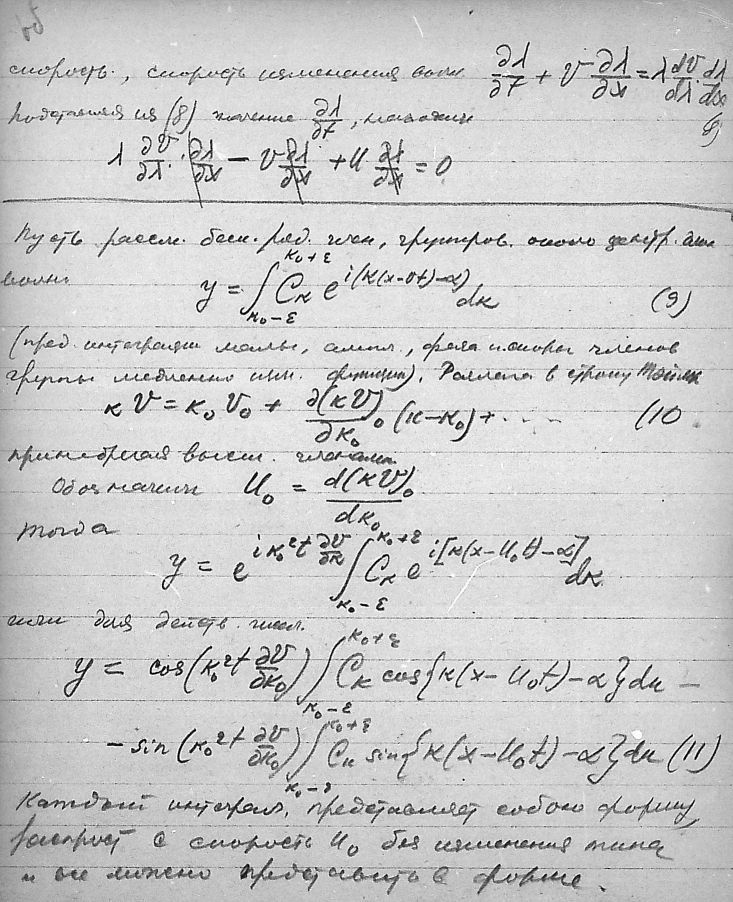 скорость, скорость изменения волн ∂λ/∂t + v ∂λ/∂x = λ dv/dλ · dλ/dx
Подставляя из (8) значение ∂λ/∂t, находим
λ ∂v/∂λ · ∂λ/∂x − v ∂λ/∂x + u ∂λ/∂x = 0
Пусть рассм. беск. ряд. член, группиров. около центр. дли
волн.
y = ∫_{κ₀−ε}^{κ₀+ε} C_κ e^{i(κ(x−vt)−α)} dκ (9)
(пред. интеграции малы, ампл., фаза и скоры членов
группы медленно изм. функции). Разлагая в строку Тэйлора
κV = κ₀V₀ + ∂(κV)₀/∂κ₀ (κ−κ₀) + .... (10
принебрегая высш. членами.
Обозначим U₀ = d(κV)₀/dκ₀
Тогда
y = e^{iκ₀²t ∂v/∂κ} ∫_{κ₀−ε}^{κ₀+ε} C_κ e^{i[κ(x−U₀t)−α]} dκ
или для действ. числ.
y = cos(κ₀²t ∂v/∂κ₀) ∫_{κ₀−ε}^{κ₀+ε} C_κ cos{κ(x−U₀t)−α}dκ −
− sin(κ₀²t ∂v/∂κ₀) ∫_{κ₀−ε}^{κ₀+ε} C_κ sin{κ(x−U₀t)−α}dκ (11)
Каждый интеграл, представляет собою форму,
распрост с скорость U₀ без изменения типа
и все можно представить в форме.